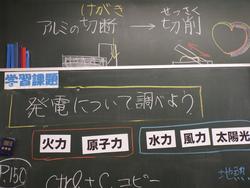 けがき せっさく
アルミの切断 → 切削
学習課題
発電について調べよう
火力 原子力 水力 風力 太陽光
地熱
P150
Ctrl + C コピー